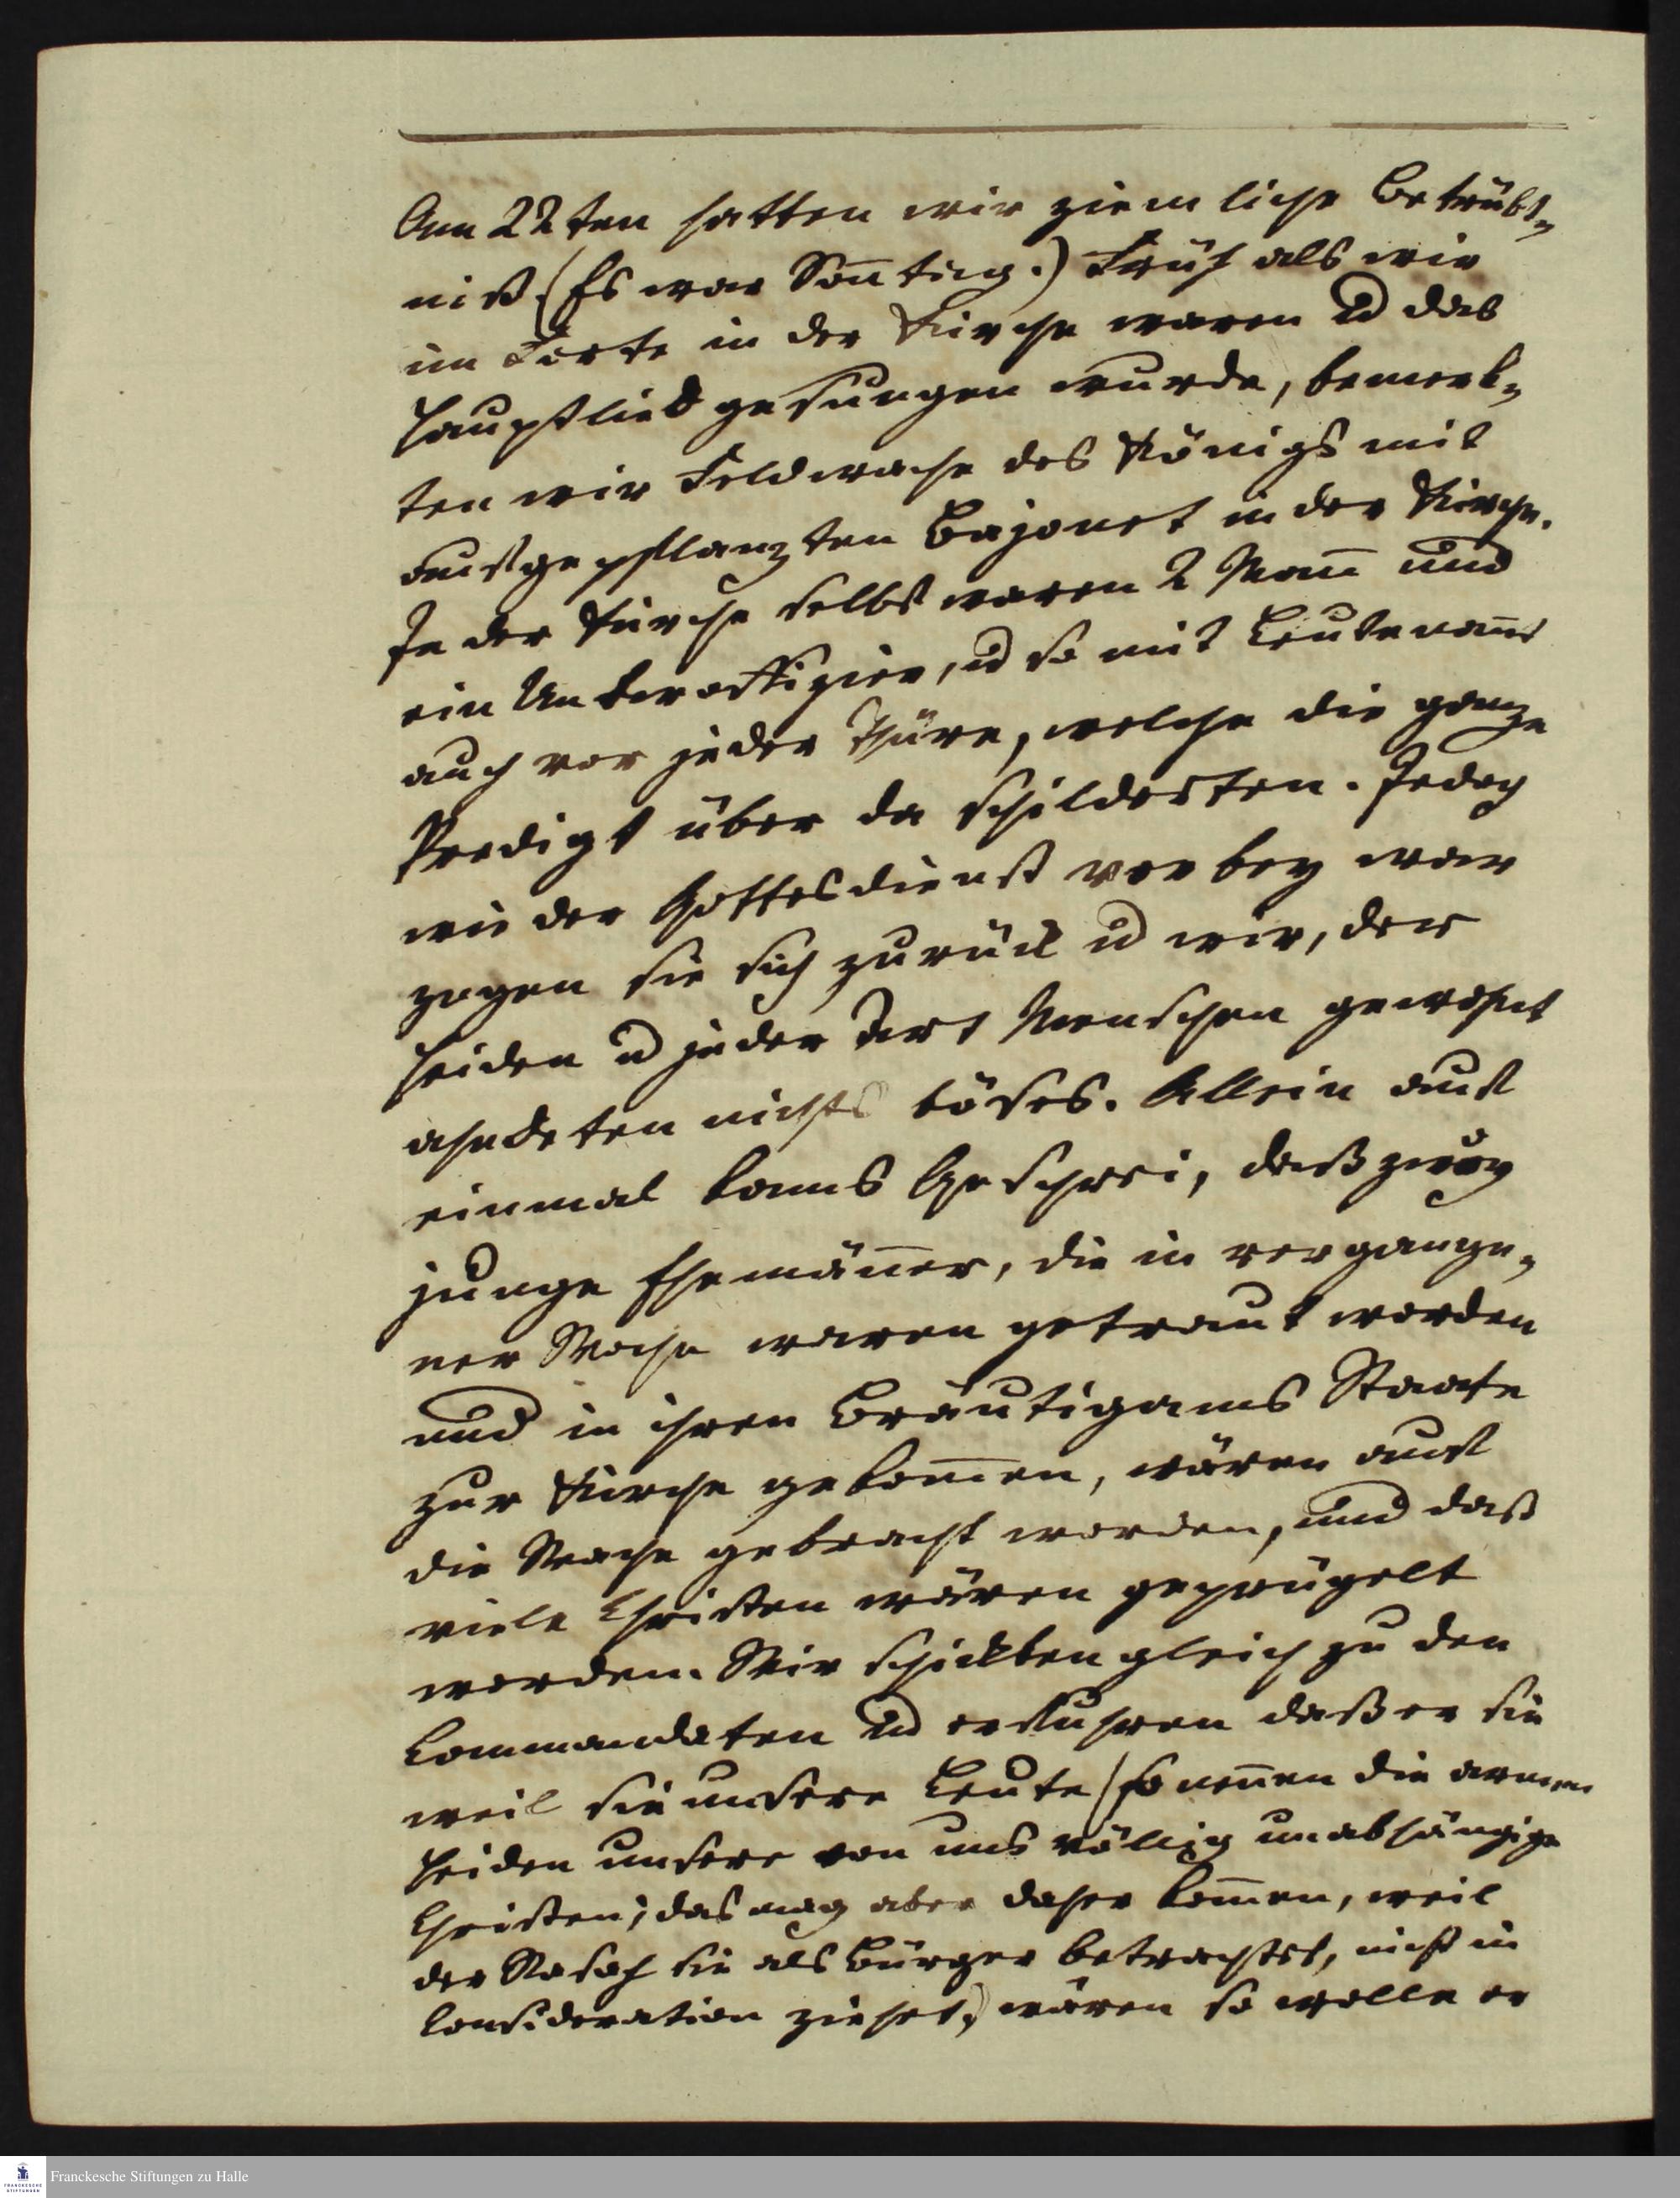 Am 22ten hatten wir ziemliche Betrüb-
niß. (Es war Sontag.) Früh als wir
im Forte in der Kirche waren u das
Hauptlied gesungen wurde, bemerk-
ten wir Feldwache des Königs mit
aufgepflanzten Bajonet in der Kirche.
In der Kirche selbst waren 2 Mann und
ein Unteroffizier, u so mit Leutenannt
auch vor jeder Thüre, welche die ganze
Predigt über da schilderten. Jedoch
wie der Gottesdienst vorbey war
zogen sie sich zurück u wir, der
Heiden u jeder Art Menschen gewohnt
ahndeten nichts böses. Allein auf
einmal kams Geschrei, daß zwey
junge Ehemänner, die in vergange-
ner Woche waren getraut worden
und in ihren Bräutigams Staate
zur Kirche gekommen, wären auf
die Wache gebracht worden, und daß
viele Christen wären geprügelt
worden. Wir schickten gleich zu den
Commandaten u erfuhren daß er sie
weil sie unsere Leute (so nennen die armen
Heiden unsere von uns völlig unabhängige
Christen; das mag aber daher kommen, weil
der Rasah sie als Bürger betrachtet, nicht in
Consideration ziehet,) wären so wolle er
Franckesche Stiftungen zu Halle
FRANCKESCHE STIFTUNGEN